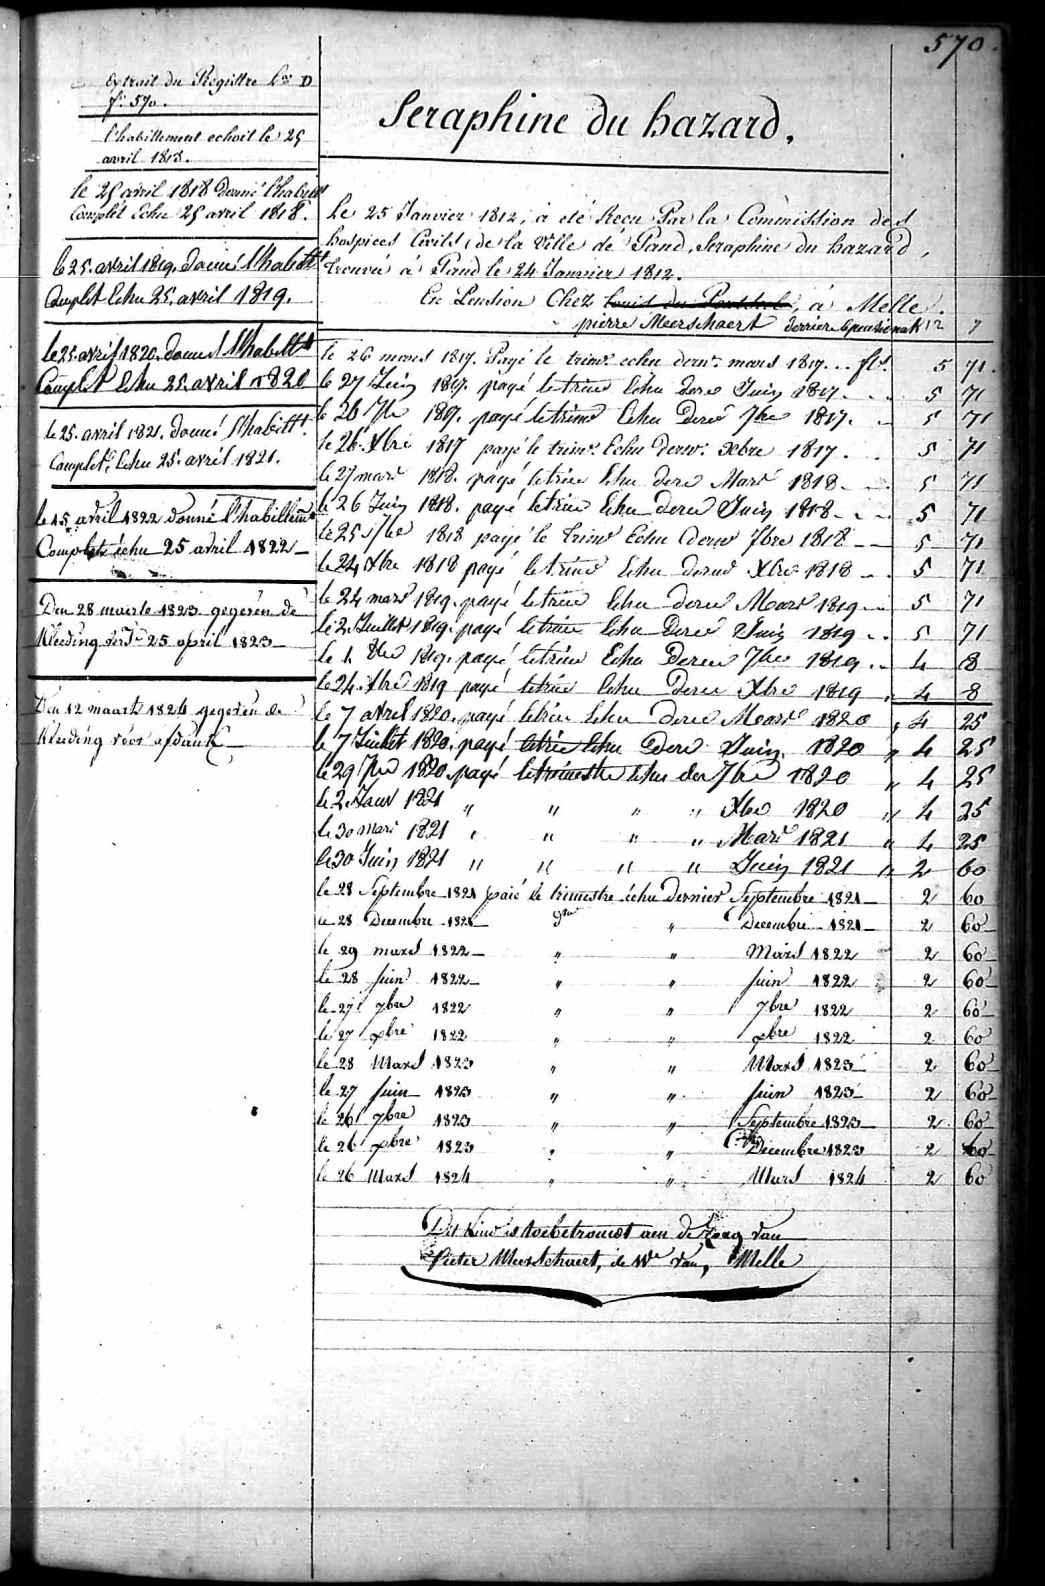 570.
Extrait du Registre D
f° 570.
l'habillement echoit le 25
avril 1818.
le 25 avril 1818 donné l'habill
Complét Echu 25 avril 1818.
le 25. avril 1819. donné l'habittt
Complet Echu 25. avril 1819.
le 25. avril 1820. donné l'habittt
Complet Echu 25. avril 1820
le 25. avril 1821. donné l'habittt.
Complet. Echu 25. avril 1821.
le 15 avril 1822 donné l'habillemt
Complet échu 25 avril 1822
Den 28 maerte 1823 gegeven de
Kleeding 25 april 1823
Den 12 maarte 1824 gegeven de
Kleeding voor afdank
Seraphine du hazard.
Le 25 Janvier 1812, à eté Recu Par la Commission des
hospices Civils, de la Ville de Gand, Seraphine du hazard,
trouvée à Gand le 24 Janvier 1812.
En Pension Chez Louis du à Melle.
pierre Meerschaert derriere 12 7
le 26 mars 1817. Payé le trimr. echu dernr. mars 1817 . . . fls. 5 71.
le 27 Juin 1817. payé le trimr Echu derr Juin 1817. . . 5 71
le 26 7bre 1817. payé le trimr Echu derr 7bre 1817. 5 71
le 26. Xbre 1817 payé le trimr. Echu dernr. Xbre 1817 . . 5 71
le 27 mars 1818. payé le trimr Echu derr Mars 1818 5 71
le 26 Juin 1818. payé le trimr Echu derr Juin 1818 5 71
le 25 7bre 1818 payé le Trimr Echu dernr 7bre 1818 5 71
le 24 Xbre 1818 payé le trimr Echu dernr Xbre 1818 5 71
le 24 mars 1819. payé le trimr Echu dernr Mars 1819 5 71
le 2. Juillet 1819. payé le trimr Echu derr Juin 1819 . . 5 71
le 1. 8bre 1819. payé le trimr Echu Derr 7bre 1819 . . 4 8
le 24. Xbre 1819 payé le trimr Echu Derr Xbre 1819 " 4 8
le 7 avril 1820. payé le trimr Echu derr Mars 1820 " 4 25
le 7 Juillet 1820. payé le trimr Echu derr Juin 1820 " 4 25
le 29 7bre 1820. payé le trimestre Echu der 7bre 1820 " 4 25
le 2. Janv 1821 " " " " Xbre 1820 " 4 25
le 30 mars 1821 " " " " Mars 1821 " 4 25
le 30 Juin 1821 " " " " Juin 1821 " 2 60
le 28 Septembre 1821 paié le trimestre échu dernier Septembre 1821 2 60
le 28 Decembre 1821 " Decembre 1821 2 60
le 29 mars 1822 " " Mars 1822 2 60
le 28 juin 1822 " " juin 1822 2 60
le 27 7bre 1822 " " 7bre 1822 2 60
le 27 xbre 1822 " " xbre 1822 2 60
le 28 Mars 1823 " " Mars 1823 2 60
le 27 juin 1823 " " juin 1823 2 60
le 26 7bre 1823 " " Septembre 1823 2 60
le 26 xbre 1823 " " Decembre 1823 2 60
le 26 Mars 1824 " " Mars 1824 2 60
Dit Kind is toebetrouwt aen de Zorg van
Pieter Meerschaert, de We van, Melle